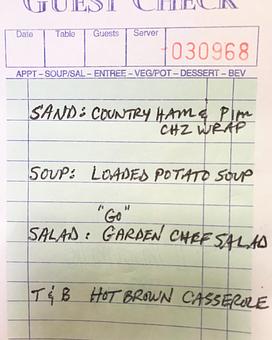 GUEST CHECK
Date Table Guests Server
030968
APPT – SOUP/SAL – ENTREE – VEG/POT – DESSERT – BEV
SAND: COUNTRY HAM & PIM
CHZ WRAP
SOUP: LOADED POTATO SOUP
"GO"
SALAD: GARDEN CHEF SALAD
T & B HOT BROWN CASSEROLE